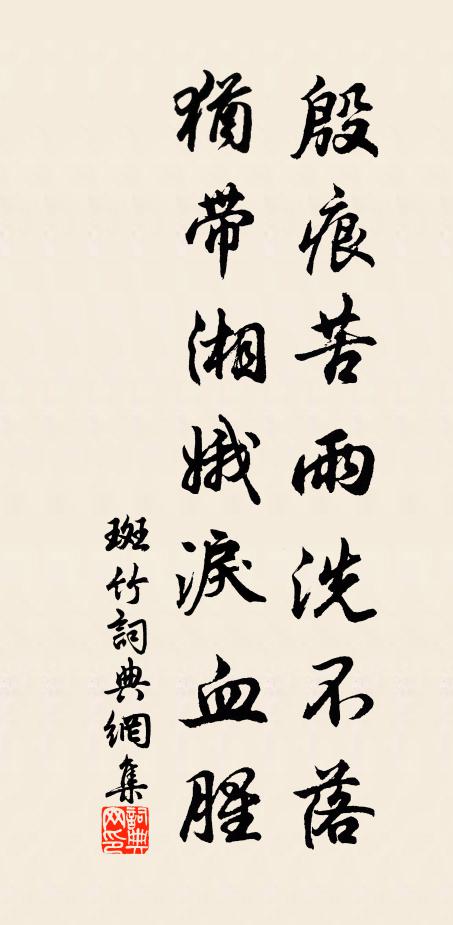 殷痕苦雨洗不落
猶帶湘娥淚血腥
斑竹詞典網集
詞典網印